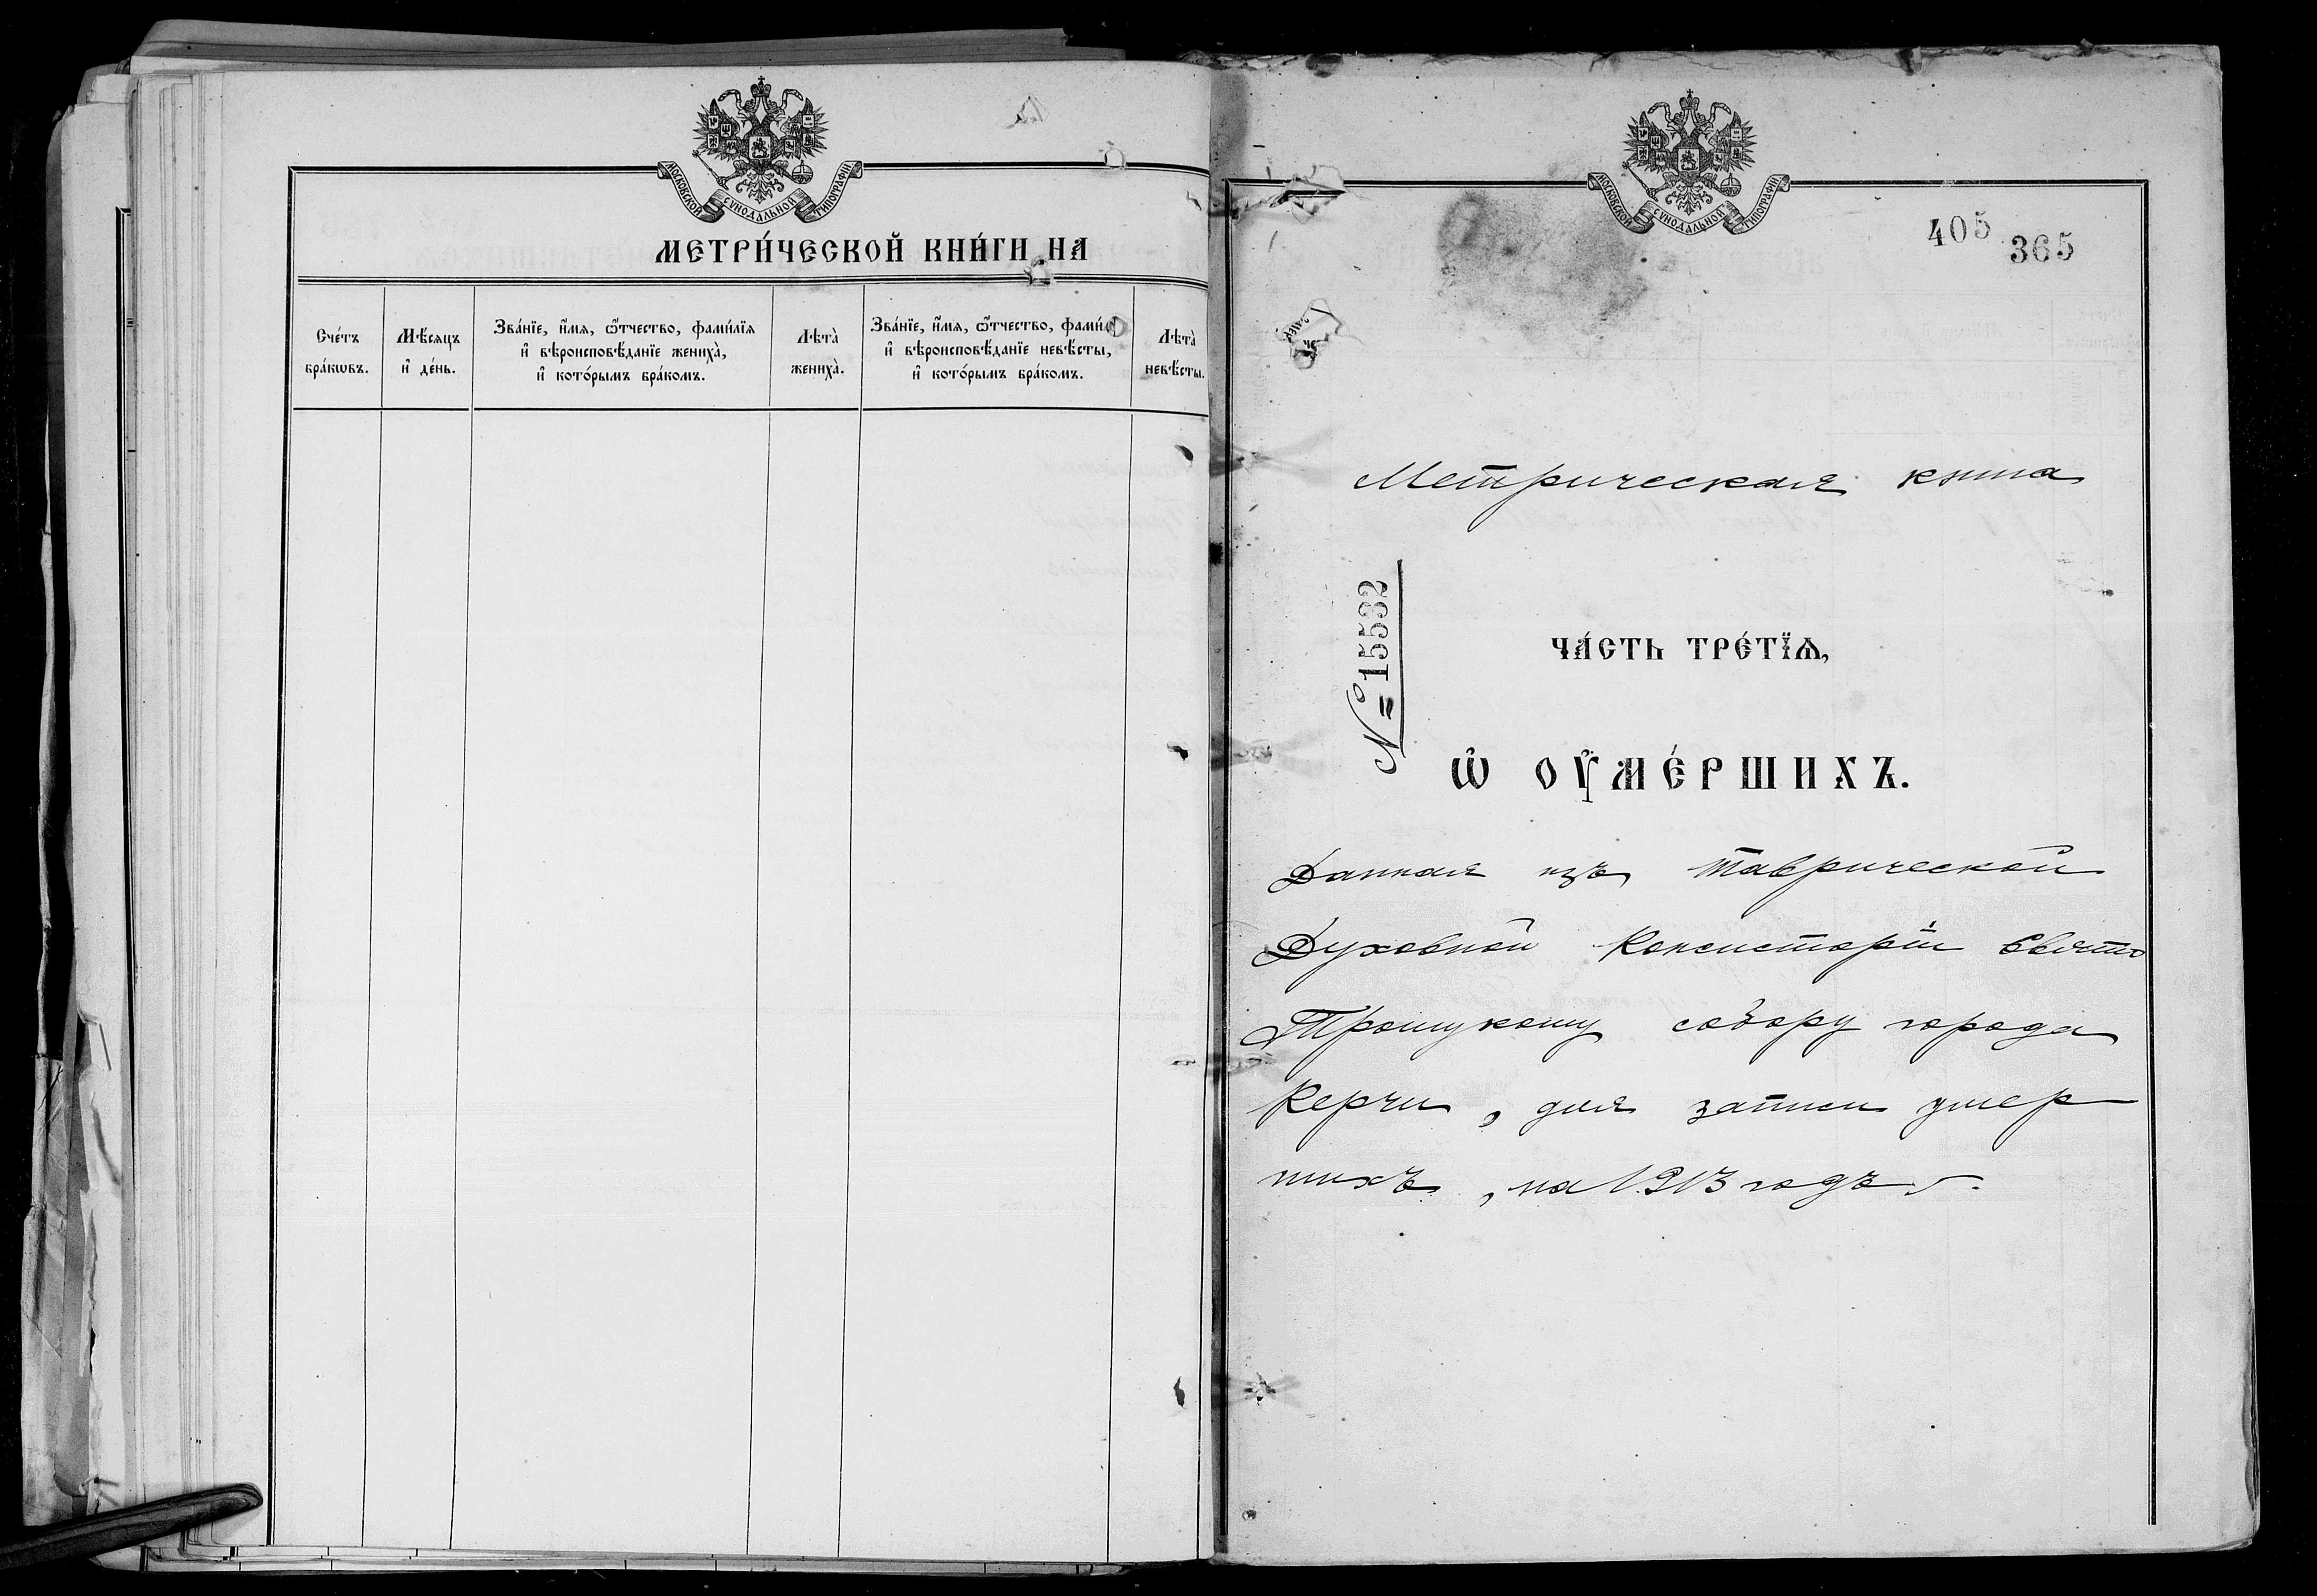 МОСКОВСКОЙ СѴНОДАЛЬНОЙ ТИПОГРАФІИ
МЕТРИ́ЧЕСКОЙ КНИ́ГИ НА
Сче́тъ бра́кѡвъ.
Мѣ́сяцъ и҆ де́нь.
Зва́нїе, и҆́мя, ѻ҆́тчество, фами́лїя
и҆ вѣроисповѣ́данїе жениха̀,
и҆ кото́рымъ бра́комъ.
Лѣта̀ жениха̀.
Зва́нїе, и҆́мя, ѻ҆́тчество, фами́л
и҆ вѣроисповѣ́данїе невѣ́сты,
и҆ кото́рымъ бра́комъ.
Лѣта̀ невѣ́сты.
МОСКОВСКОЙ СѴНОДАЛЬНОЙ ТИПОГРАФІИ
405
365
Метрическая книга
№ 15532
ЧА́СТЬ ТРЕ́ТЇѦ,
Ѡ҆ ОУ҆МЕ́РШИХЪ.
Данная изъ Таврической
Духовной Консисторіи Свято
Троицкому собору города
Керчи, для записи умер
шихъ, на 1913 годъ.